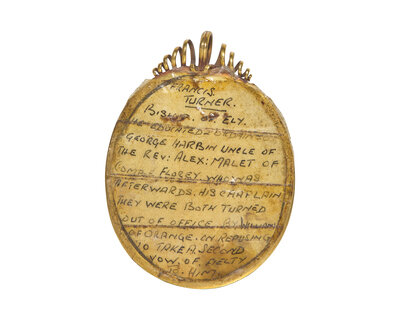 FRANCIS
TURNER.
BISHOP. OF ELY.
HE EDUCATED & ORDAIN
GEORGE HARBIN UNCLE OF
THE REV: ALEX: MALET OF
COMBE FLOREY. WHO WAS
AFTERWARDS. HIS CHAPLAIN
THEY WERE BOTH TURNED
OUT OF OFFICE BY WILLIAM
OF ORANGE. ON REFUSING
TO TAKE A SECOND
VOW. OF
TO. HIM.